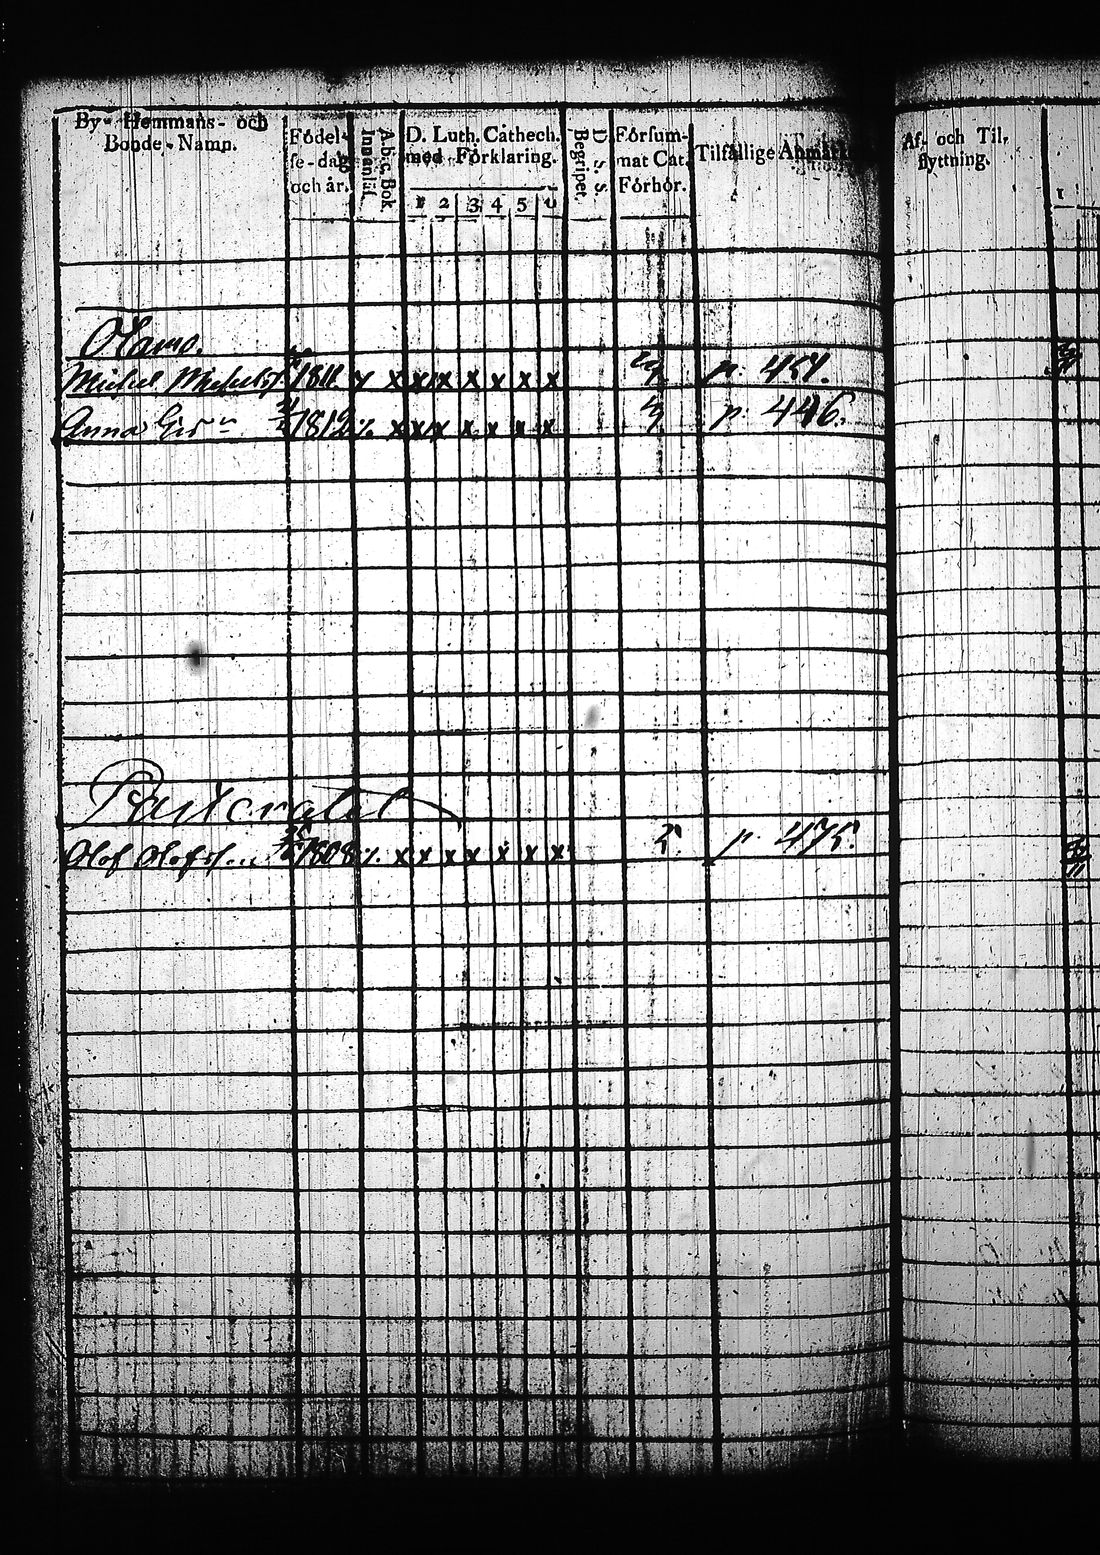 By- Hemmans- och
Boode-Namn.
Födel-
se-dag
och år.
A.b.c. Bok.
Innanläs.
D. Luth. Cathech.
med Förklaring.
1 2 3 4 5 6
D. S. S.
Begripet.
Försum-
mat Cat.
Förhör.
Tilfällige Anmärk
Af- och Til-
flyttning.
1
Olamo.
Michel 1811 x x x x x x x x p. 451.
Anna 1812 x x x x x x x p. 446.
Pastoratet
Olof Olofss.n 1808 x x x x x x x p. 475.